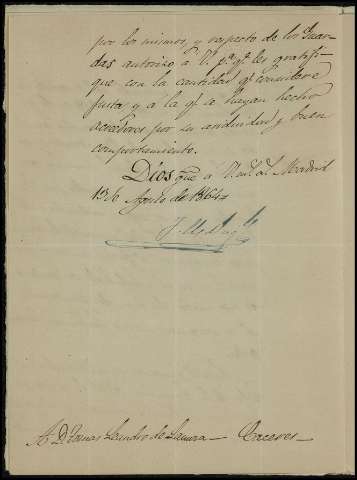 por los mismos, y respecto de los Guar-
das autorizo a V. pª. qº. les gratifi-
que con la cantidad qº considere
justa y a la qº. se hayan hecho
acreedores por su asiduidad y buen
comportamiento.
Dios gue. a V. ms. as. Madrid
13 Agosto de 1864
A D. Tomas Leandro de Lamora — Caceres —